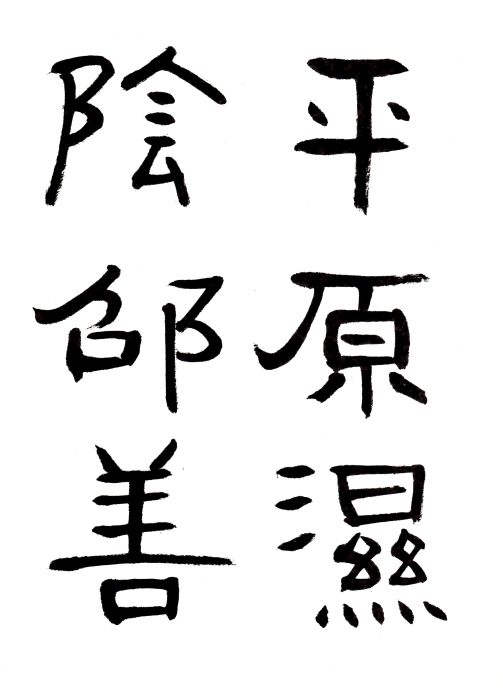 平原濕
陰邵善